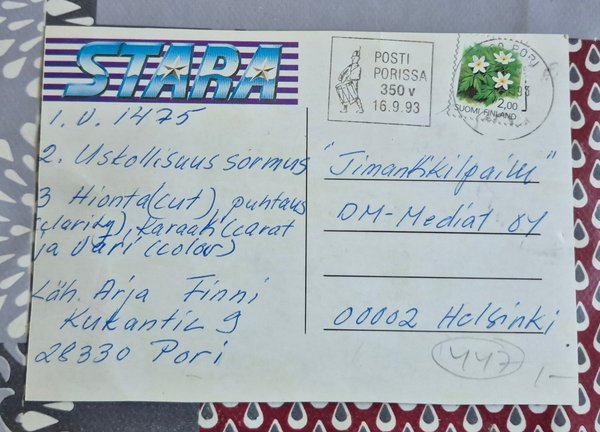 STARA
1. V. 1475
2. Uskollisuus sormus
3 Hionta(cut), puhtaus
(clarity), karaatti(carat
ja väri (color)
Läh. Arja Finni
Kukantie 9
28330 Pori
POSTI
PORISSA
350 v
16.9.93
PORI
2,00
SUOMI-FINLAND
"Timanttikilpailu"
DM-Mediat OY
00002 Helsinki
447
1,-